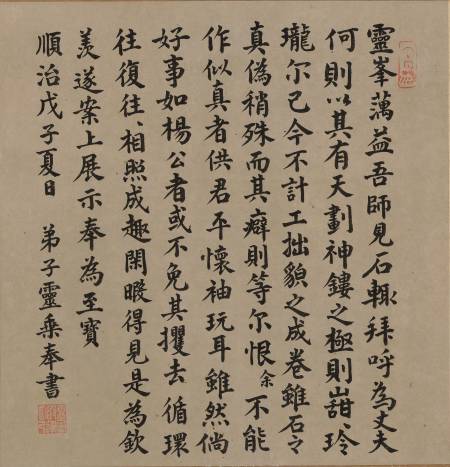 靈峯蕅益吾師見石輒拜呼為丈夫
何則以其有天劃神鏤之極則㟏玲
瓏尔已今不計工拙貌之成卷雖石之
真偽稍殊而其癖則等尔恨余不能
作似真者供君平懷袖玩耳雖然倘
好事如楊公者或不免其攫去循環
往復往、相照成趣閑暇得見是為欽
羡遂案上展示奉為至寶
順治戊子夏日　弟子靈乘奉書